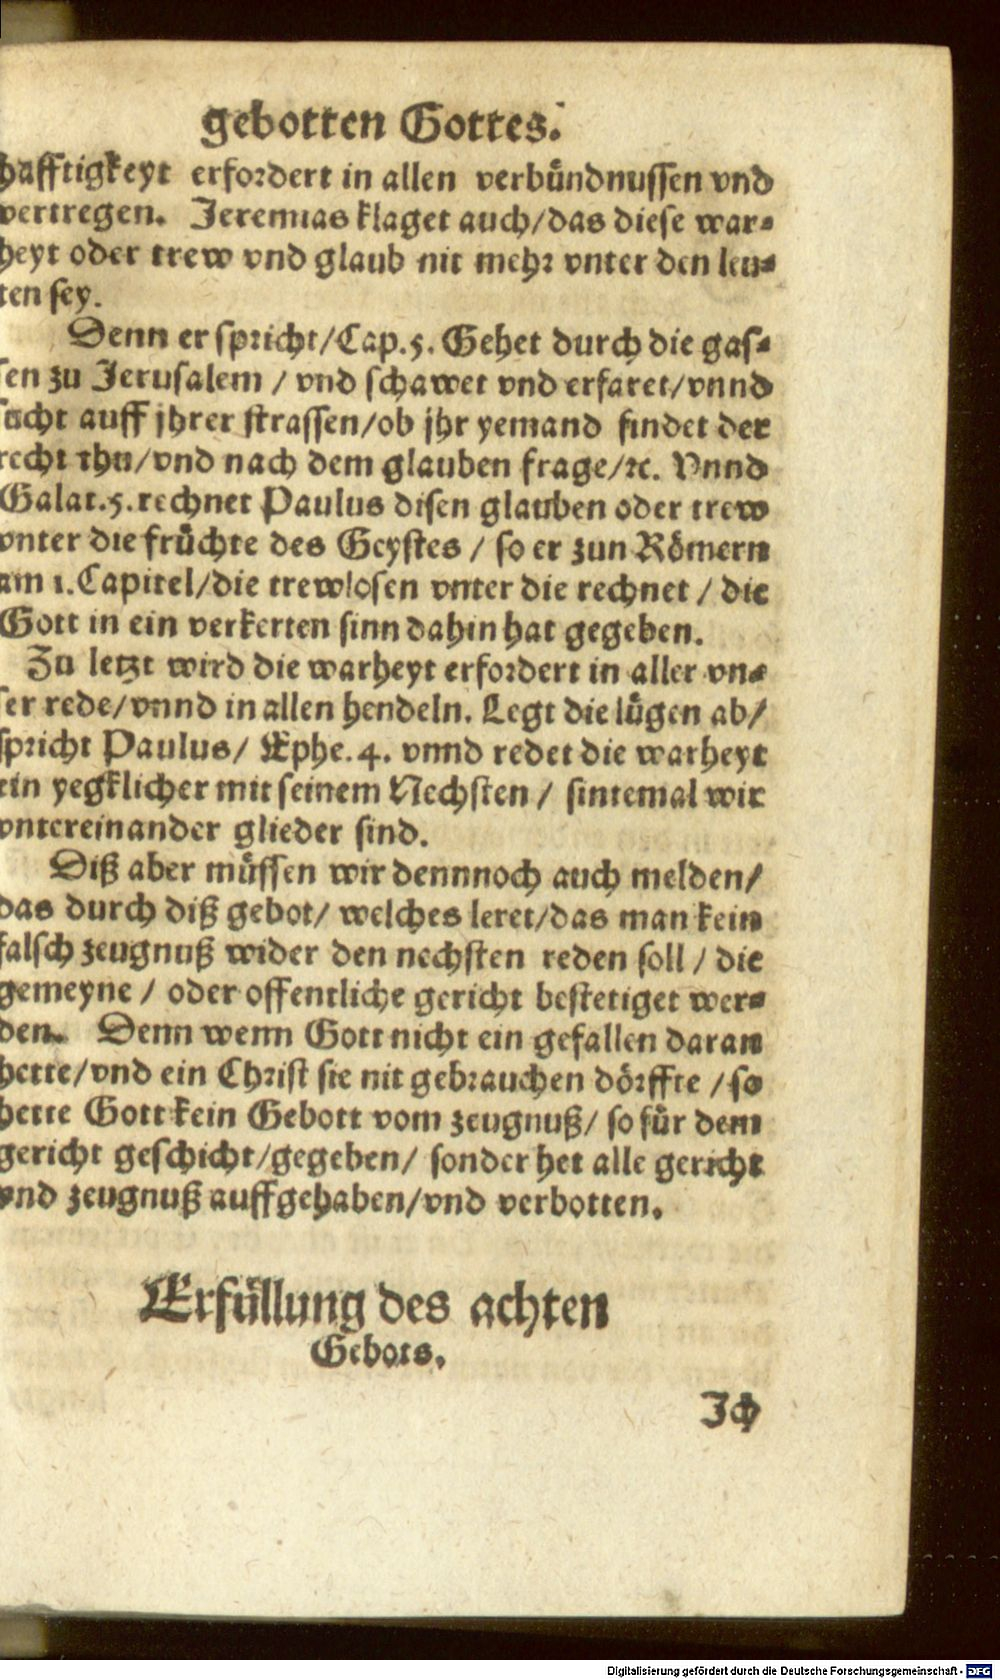 gebotten Gottes.
hafftigkeyt erfordert in allen verbündnussen vnd
vertregen. Jeremias klaget auch/das diese war-
heyt oder trew vnd glaub nit mehr vnter den leu-
ten sey.
Denn er spricht/Cap.5. Gehet durch die gas-
sen zu Jerusalem / vnd schawet vnd erfaret/vnnd
sucht auff jhrer strassen/ob jhr yemand findet der
recht thu/vnd nach dem glauben frage/ꝛc. Vnnd
Galat.5. rechnet Paulus disen glauben oder trew
vnter die früchte des Geystes / so er zun Römern
am 1.Capitel/die trewlosen vnter die rechnet / die
Gott in ein verkerten sinn dahin hat gegeben.
Zu letzt wird die warheyt erfordert in aller vn-
ser rede/vnnd in allen hendeln. Legt die lügen ab/
spricht Paulus/ Ephe.4. vnnd redet die warheyt
ein yegklicher mit seinem Nechsten / sintemal wir
vntereinander glieder sind.
Diß aber müssen wir dennnoch auch melden/
das durch diß gebot/ welches leret/das man kein
falsch zeugnuß wider den nechsten reden soll / die
gemeyne / oder offentliche gericht bestetiget wer-
den. Denn wenn Gott nicht ein gefallen daran
hette/vnd ein Christ sie nit gebrauchen dörffte /so
hette Gott kein Gebott vom zeugnuß/ so für dem
gericht geschicht/gegeben/ sonder het alle gericht
vnd zeugnuß auffgehaben/vnd verbotten.
Erfüllung des achten
Gebots.
Ich
Digitalisierung gefördert durch die Deutsche Forschungsgemeinschaft - DFG